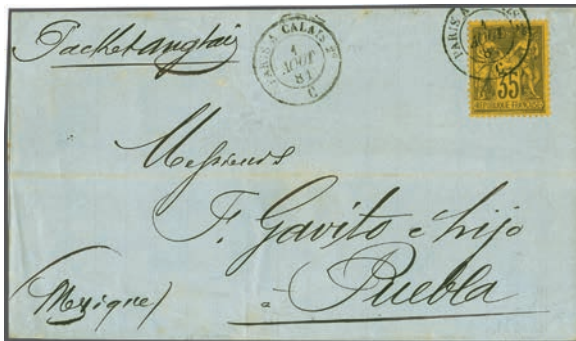 Packet anglais
PARIS A CALAIS 2°
1
AOUT
81
C
PARIS A
1
C
35
REPUBLIQUE FRANCAISE
Messieurs
F. Gavito e hijo
à Puebla
(Mexique)